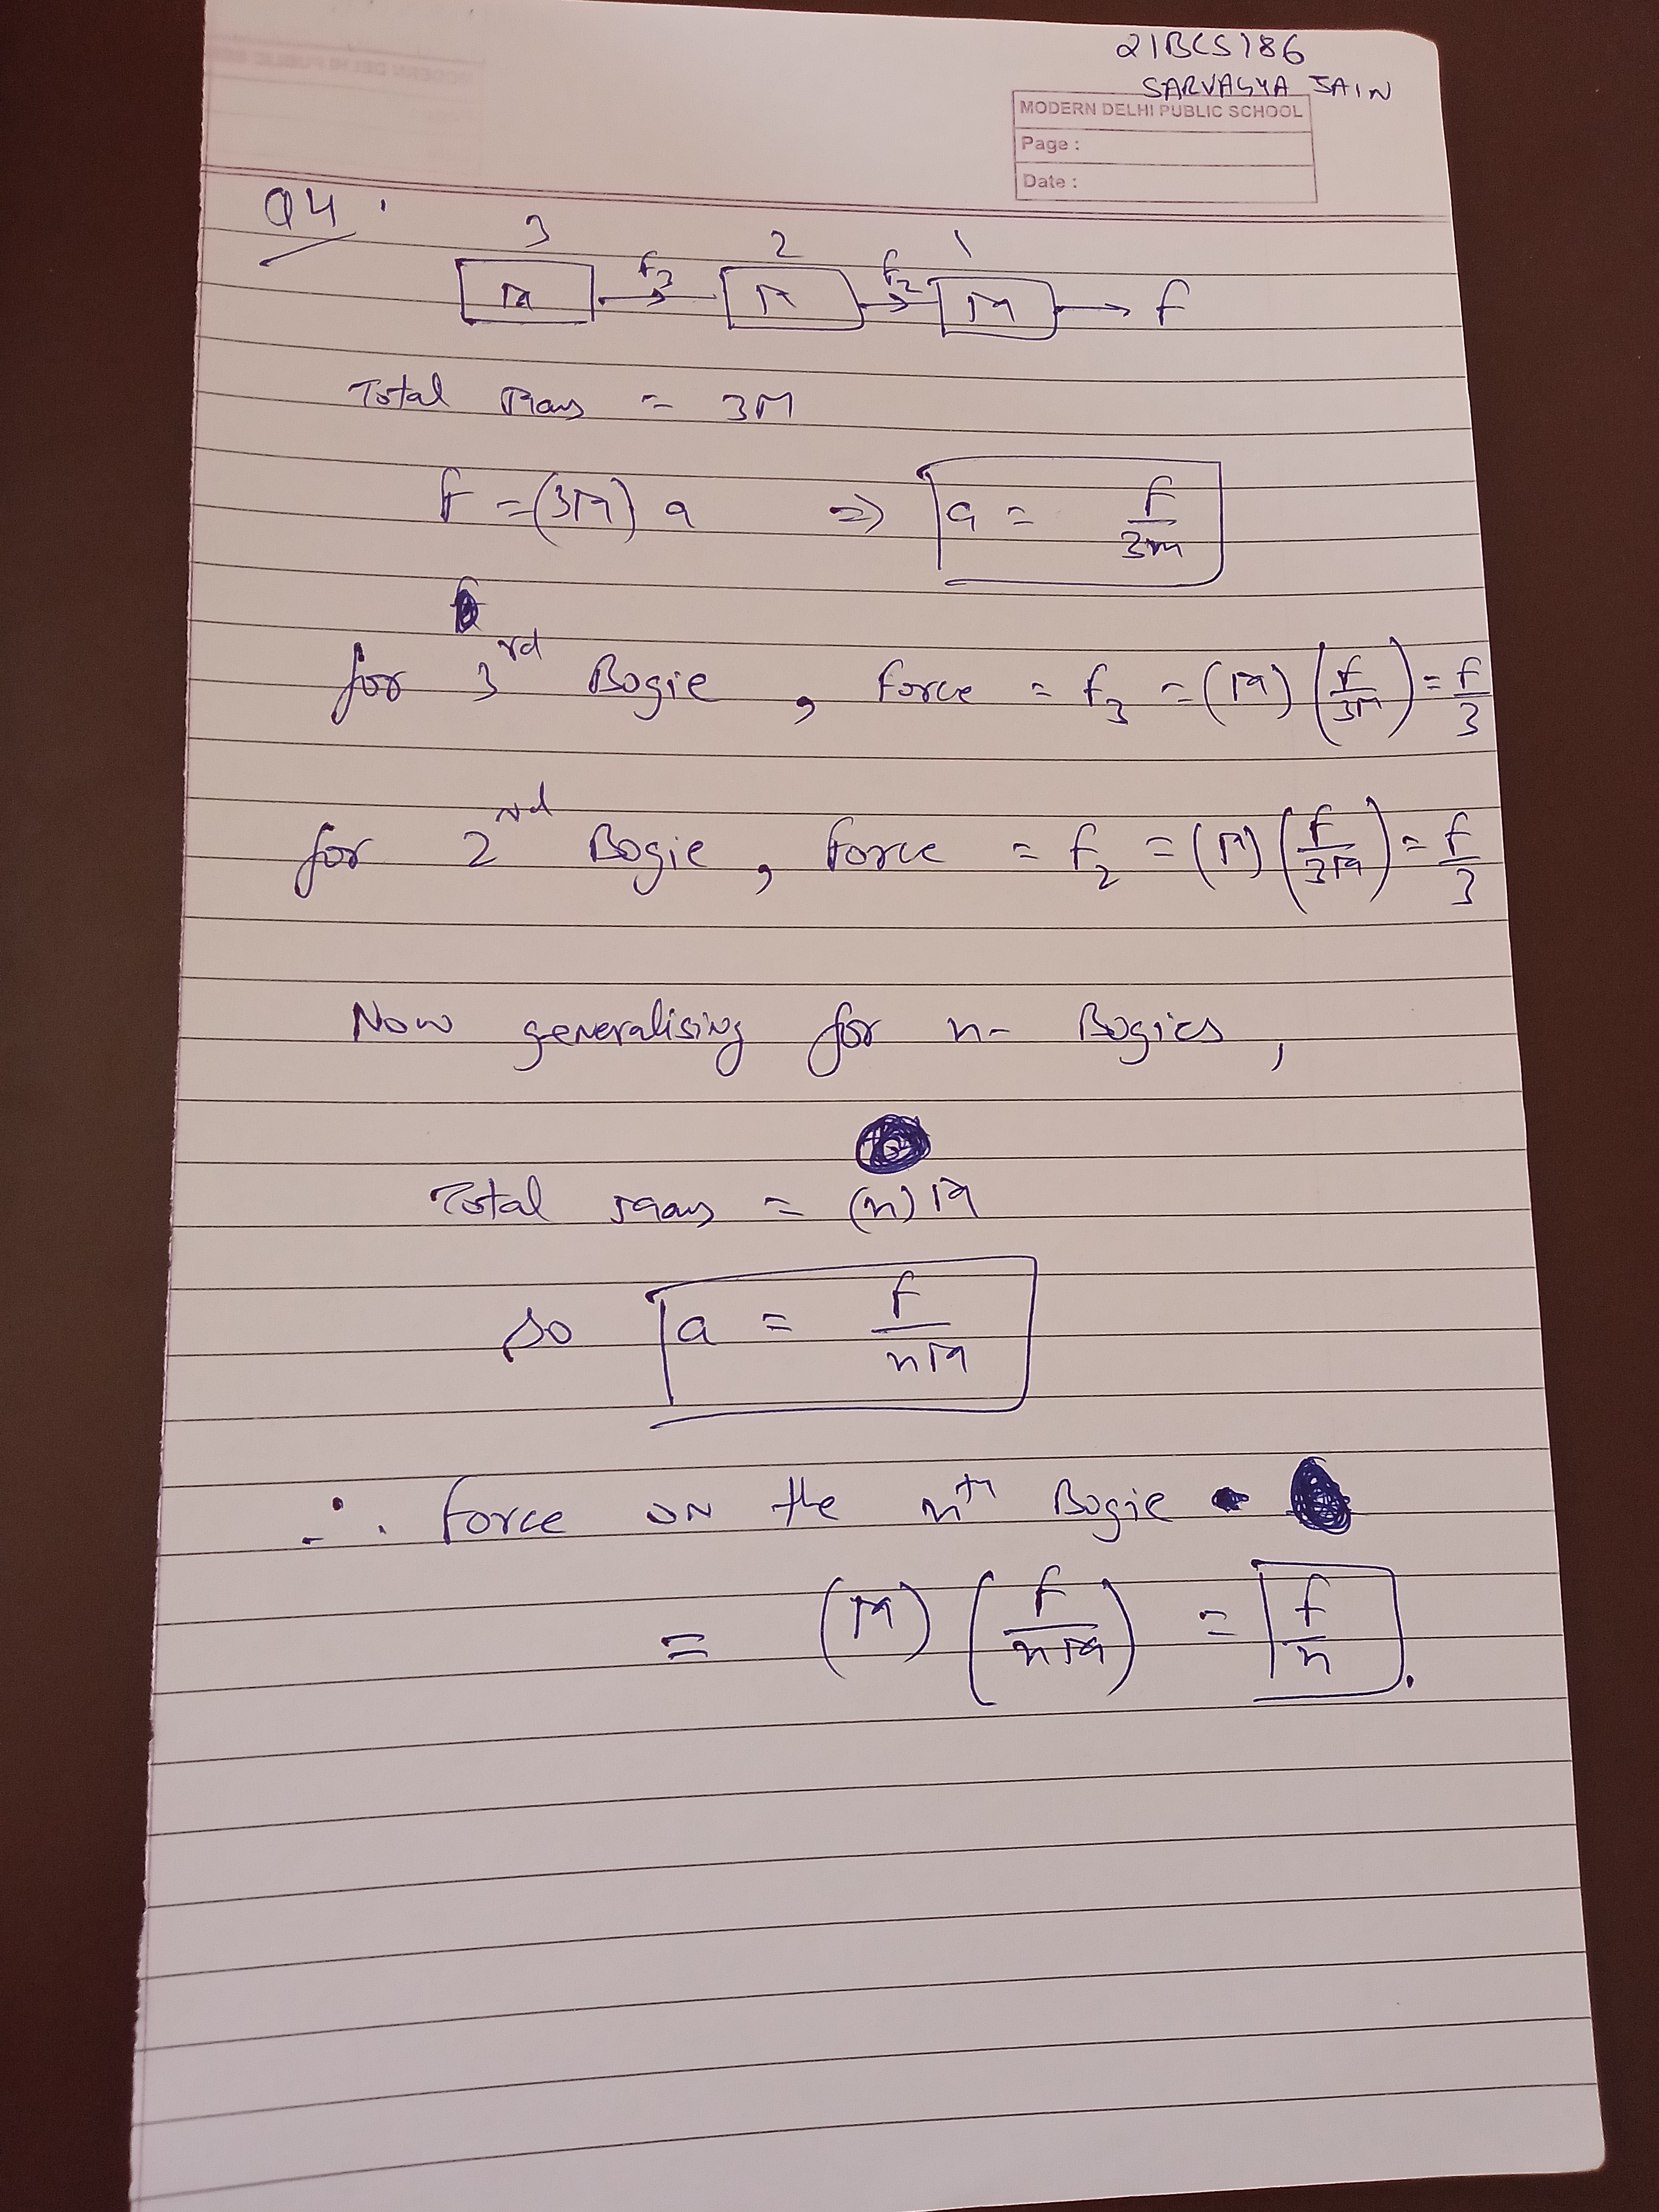 21BCS186
SARVAGYA JAIN
MODERN DELHI PUBLIC SCHOOL
Page :
Date :
Q4.
3 2 1
M F3 M F2 M F
Total Mass = 3M
F = (3M) a => a = F/3m
for 3rd Bogie, force = F3 = (M) (F/3M) = F/3
for 2nd Bogie, force = F2 = (M) (F/3M) = F/3
Now generalising for n- Bogies,
Total mass = (n) M
so a = F/nM
∴ force on the nth Bogie
= (M) (F/nM) = F/n.